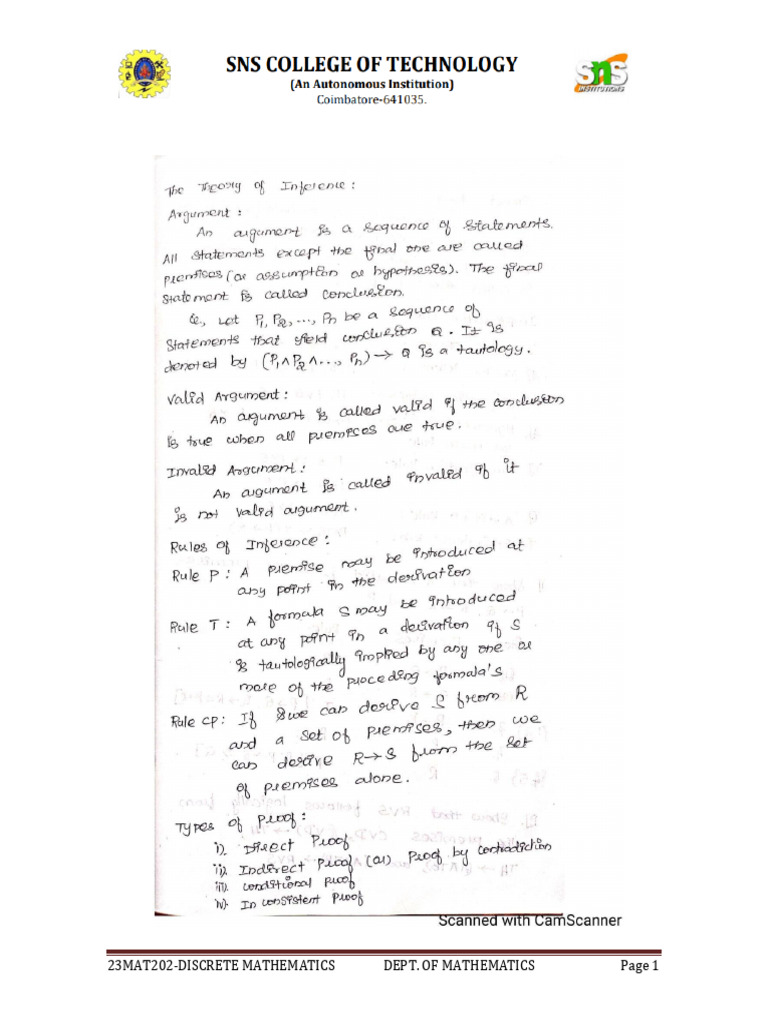 SNS COLLEGE OF TECHNOLOGY
(An Autonomous Institution)
Coimbatore-641035.
SNS
INSTITUTIONS
The Theory of Inference:
Argument:
An argument is a sequence of statements.
All statements except the final one are called
premises (or assumption or hypothesis). The final
statement is called conclusion.
ie., Let P1, P2, ..., Pn be a sequence of
statements that yield conclusion Q. It is
denoted by (P1 ∧ P2 ∧ ..., Pn) → Q is a tautology.
Valid Argument:
An argument is called valid if the conclusion
is true when all premises are true.
Invalid Argument:
An argument is called invalid if it
is not valid argument.
Rules of Inference:
Rule P: A premise may be introduced at
any point in the derivation
Rule T: A formula S may be introduced
at any point in a derivation if S
is tautologically implied by any one or
more of the preceding formula's
Rule CP: If we can derive S from R
and a set of premises, then we
can derive R→S from the set
of premises alone.
Types of Proof:
i). Direct Proof
ii). Indirect Proof (or) Proof by contradiction
iii). Conditional Proof
iv). In consistent Proof
Scanned with CamScanner
23MAT202-DISCRETE MATHEMATICS DEPT. OF MATHEMATICS Page 1